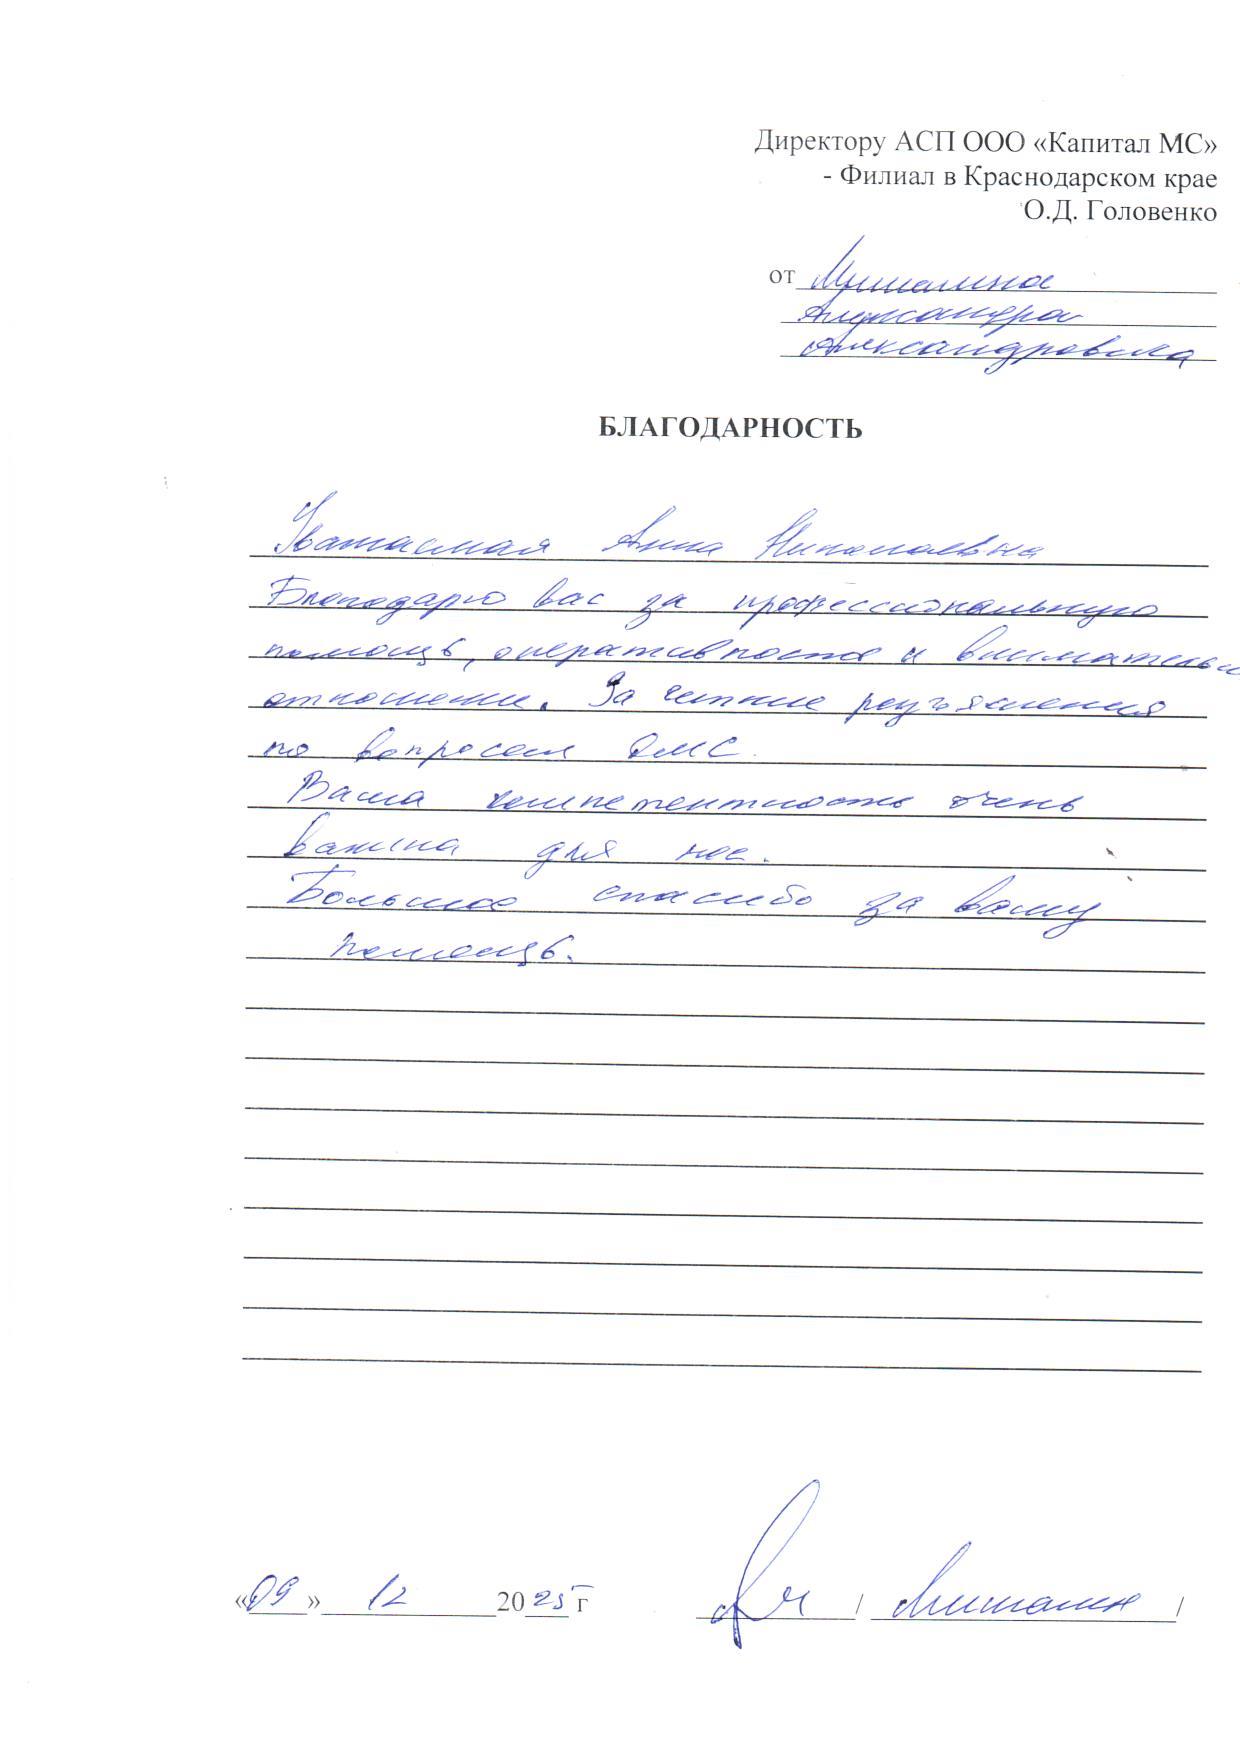 Директору АСП ООО «Капитал МС»
- Филиал в Краснодарском крае
О.Д. Головенко
от Мишалина
Александра
Александровича
БЛАГОДАРНОСТЬ
Уважаемая Анна Николаевна
Благодарю вас за профессиональную
помощь, оперативность и внимательн
отношение. За четкие разъяснения
по вопросам ОМС.
Ваша компетентность очень
важна для нас.
Большое спасибо за вашу
помощь.
«09» 12 2025 г / Мишалин /